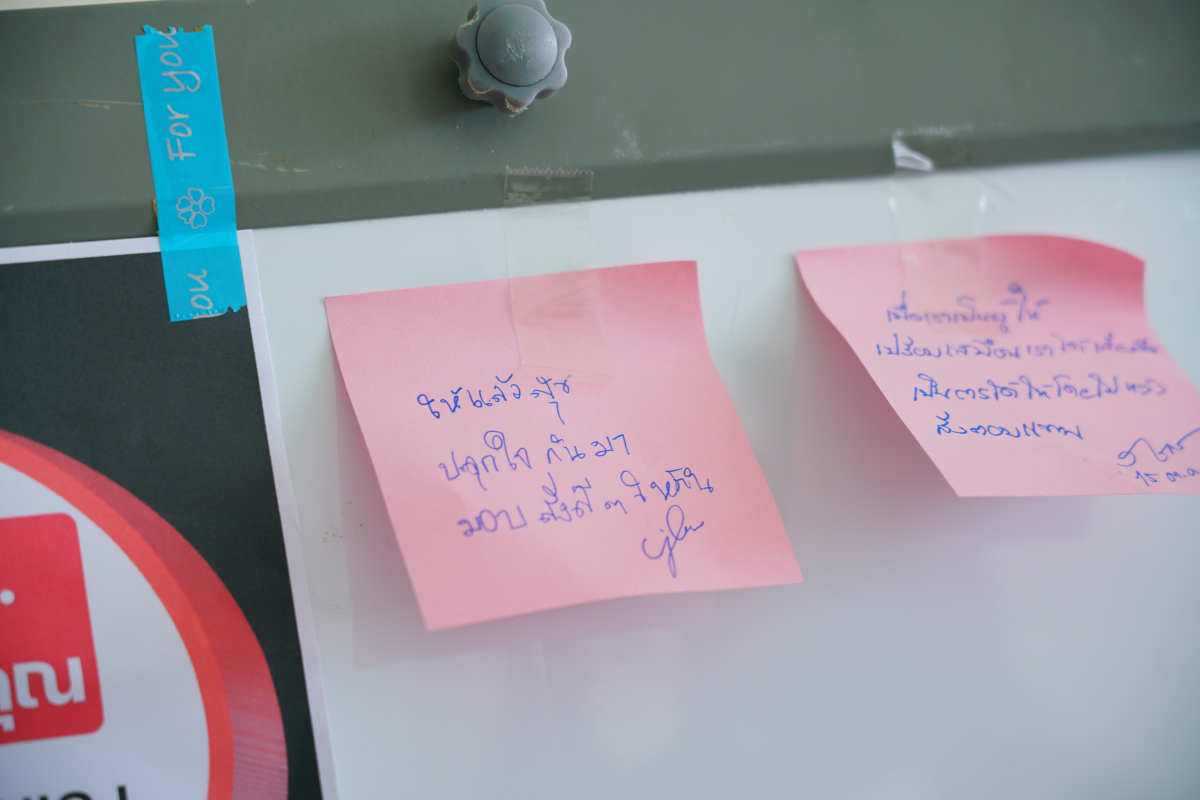 For you
ou
ให้แล้วสุข
ปลุกใจ กันมา
มอบ สิ่งดี ๆ ให้กัน
เมื่อเราเป็นผู้ให้
เปรียบเสมือน เรา ได้
เป็นการได้ให้โดยไม่หวัง
สิ่งตอบแทน
15 ต.ค
คุณ